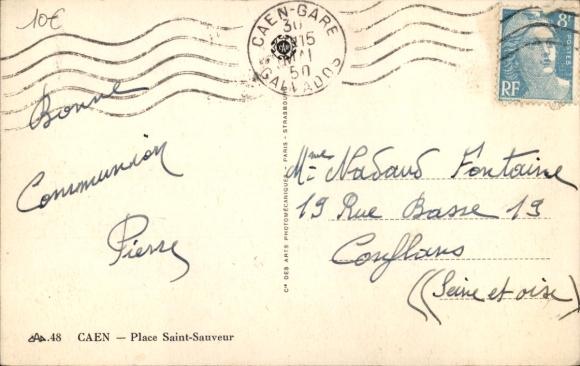 10€
CAEN-GARE
30
15
MAI
50
CALVADOS
8F
RF
Bonne
Communion
Pierre
Cie DES ARTS PHOTOMÉCANIQUES - PARIS - STRASBOURG
Mmes Nadaud Fontaine
19 Rue Basse 19
Conflans
(Seine et oise)
.48 CAEN — Place Saint-Sauveur